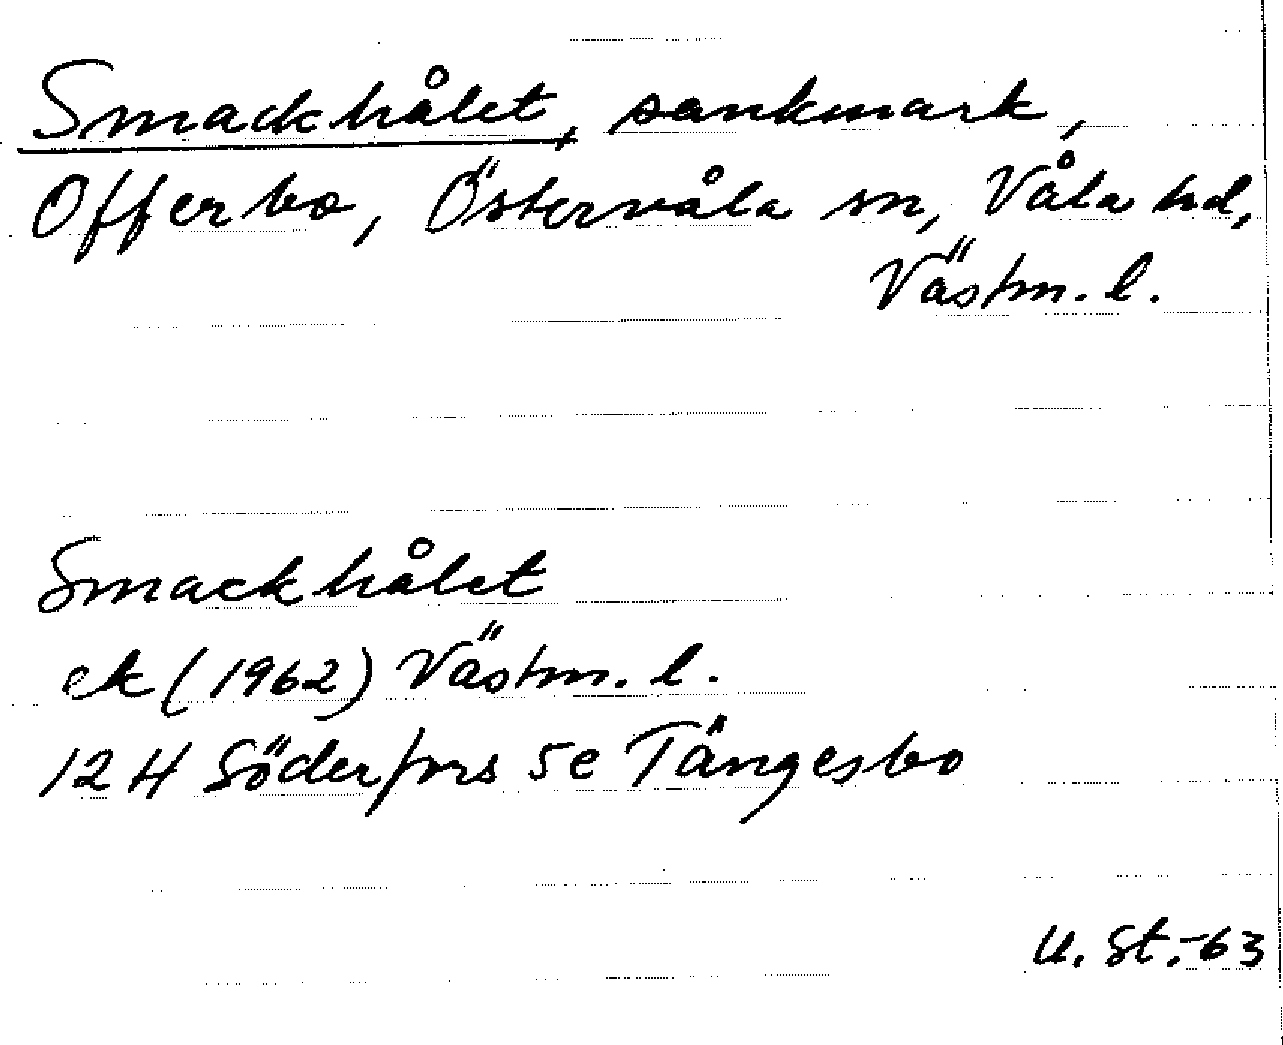 Smackhålet, sankmark,
Offerbo, Östervåla sn, Våla hd,
Västm. l.
Smackhålet
ek (1962) Västm. l.
12 H Söderfors 5e Tängesbo
U. St. -63